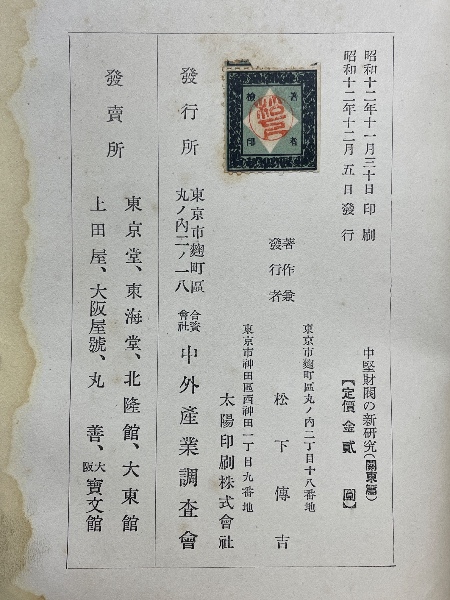 昭和十二年十一月三十日印刷
昭和十二年十二月五日發行
中堅財閥の新研究(關東篇)
【定價金貳圓】
著者
檢印
東京市麴町區丸ノ內二丁目十八番地
著作兼
發行者
松下傳吉
東京市神田區西神田一丁目九番地
太陽印刷株式會社
發行所
東京市麴町區
丸ノ內二ノ一八
合資
會社
中外產業調査會
發賣所
東京堂、東海堂、北隆館、大東館
上田屋、大阪屋號、丸善、大阪寶文館